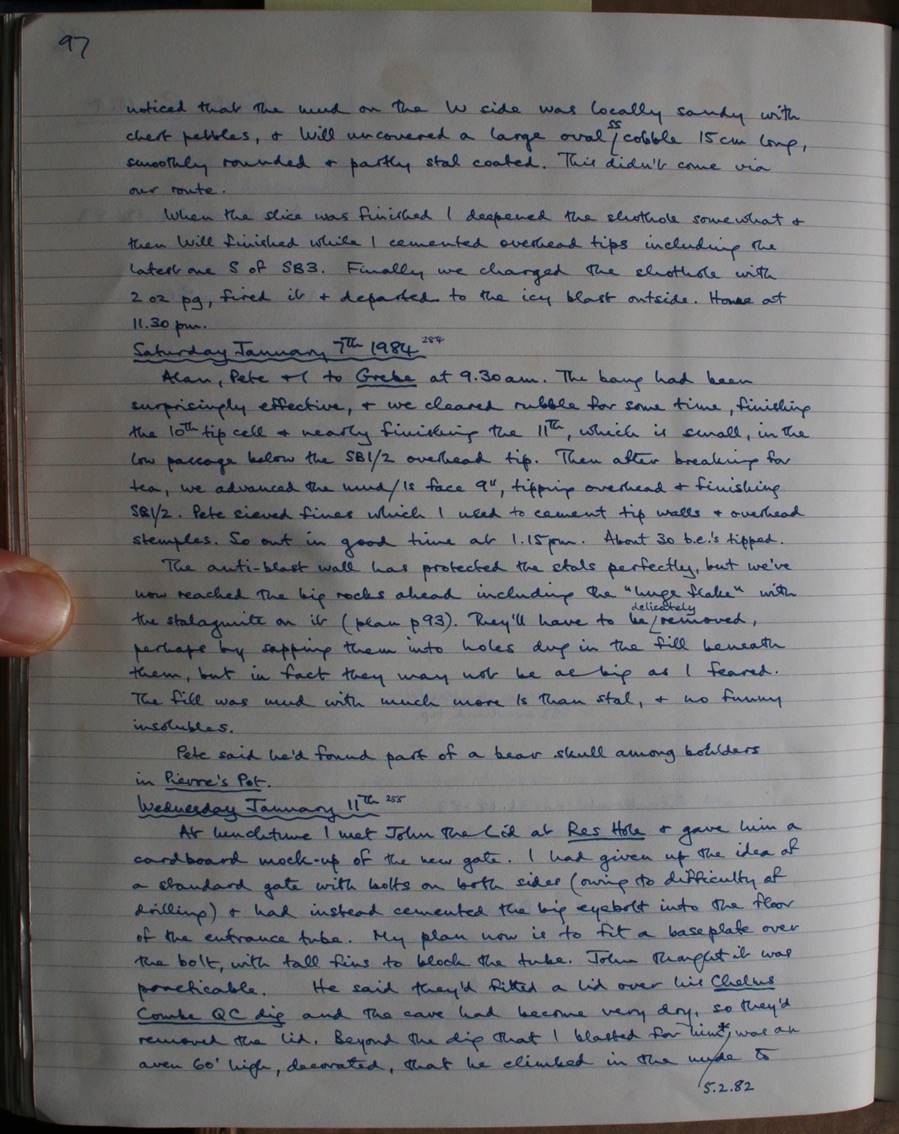 97
noticed that the mud on the W side was locally sandy with
chert pebbles, & Will uncovered a large oval ss cobble 15cm long,
smoothly rounded & partly stal coated. This didn't come via
our route.
When the slice was finished I deepened the shothole somewhat &
then Will finished while I cemented overhead tips including the
latest one S of SB3. Finally we charged the shothole with
2 oz pg, fired it & departed to the icy blast outside. Home at
11.30 pm.
Saturday January 7th 1984 254
Alan, Pete & I to Grebe at 9.30am. The bang had been
surprisingly effective, & we cleared rubble for some time, finishing
the 10th tip cell & nearly finishing the 11th, which is small, in the
low passage below the SB1/2 overhead tip. Then after breaking for
tea, we advanced the mud/ls face 9", tipping overhead & finishing
SB1/2. Pete sieved fines which I used to cement tip walls & overhead
stemples. So out in good time at 1.15pm. About 30 b.e.'s tipped.
The anti-blast wall has protected the stals perfectly, but we've
now reached the big rocks ahead including the "huge flake" with
the stalagmite on it (plan p93). They'll have to be delicately removed,
perhaps by sapping them into holes dug in the fill beneath
them, but in fact they may not be as big as I feared.
The fill was mud with much more ls than stal, & no funny
insolubles.
Pete said he'd found part of a bear skull among boulders
in Pierre's Pot.
Wednesday January 11th 255
At lunchtime I met John the Lid at Res Hole & gave him a
cardboard mock-up of the new gate. I had given up the idea of
a standard gate with bolts on both sides (owing to difficulty of
drilling) & had instead cemented the big eyebolt into the floor
of the entrance tube. My plan now is to fit a baseplate over
the bolt, with tall fins to block the tube. John thought it was
practicable. He said they'd fitted a lid over his Chelms
Combe QC dig and the cave had become very dry, so they'd
removed the lid. Beyond the dig that I blasted for him*, was an
aven 60' high, decorated, that he climbed in the nude to
5.2.82